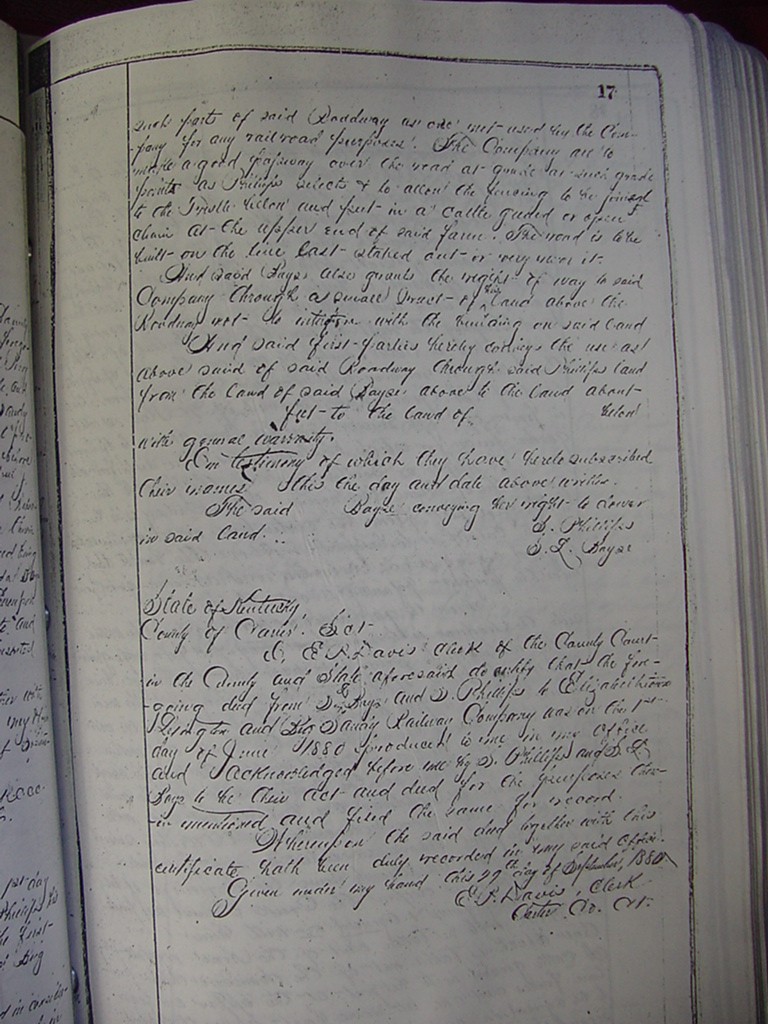 17
such parts of said Roadway as are not used by the Com-
pany for any railroad purposes. The Company are to
make a good passway over the road at grade at such grade
points as Phillips selects & to allow the fencing to be joined
to the Trestle below and put in a cattle guard or open
at the upper end of said farm. The road is to be
built on the line last staked out or very near it.
And said Bays also grants the right of way to said
Company through a small tract of his land above the
Roadway not to interfere with the building on said land
And said first parties hereby conveys the use as
above said of said Roadway through said Phillips land
from the land of said Bays above to the land about
feet to the land of below
with general warranty.
In testimony of which they have hereto subscribed
their names this the day and date above written
The said Bays conveying her right to dower
in said land.
S. Phillips
S. L. Bays
State of Kentucky
County of Carter. Sct
I, E. P. Davis clerk of the County Court
in the County and State aforesaid do certify that the fore-
going deed from S L Bays and S. Phillips to Elizabethtown
Lexington and Big Sandy Railway Company was on the 1st
day of June 1880 produced to me in my office
and acknowledged before me by S. Phillips and S. L.
Bays to be their act and deed for the purposes there-
in mentioned and filed the same for record.
Whereupon the said deed together with this
certificate hath been duly recorded in my said office.
Given under my hand this 29th day of September, 1880
E. P. Davis, Clerk
Carter Co. Ct.